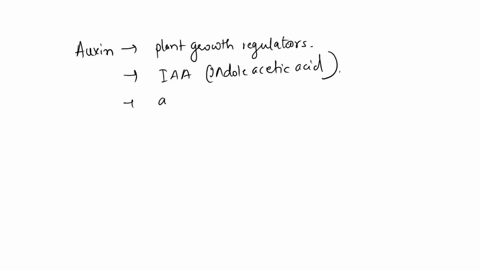 Auxin → plant growth regulators.
→ IAA (Indole acetic acid).
→ a